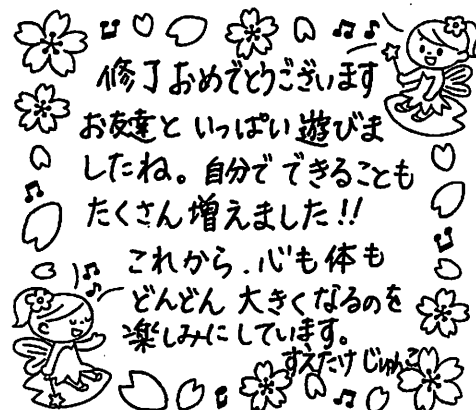 修了おめでとうございます
お友達といっぱい遊びま
したね。自分でできることも
たくさん増えました!!
これから、心も体も
どんどん大きくなるのを
楽しみにしています。
すえたけじゅんこ